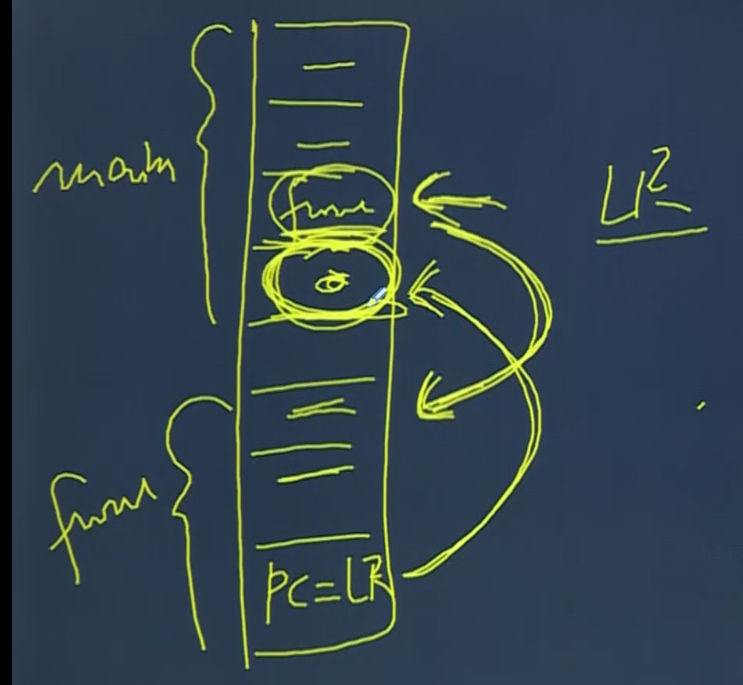 main
func
LR
func
PC=LR